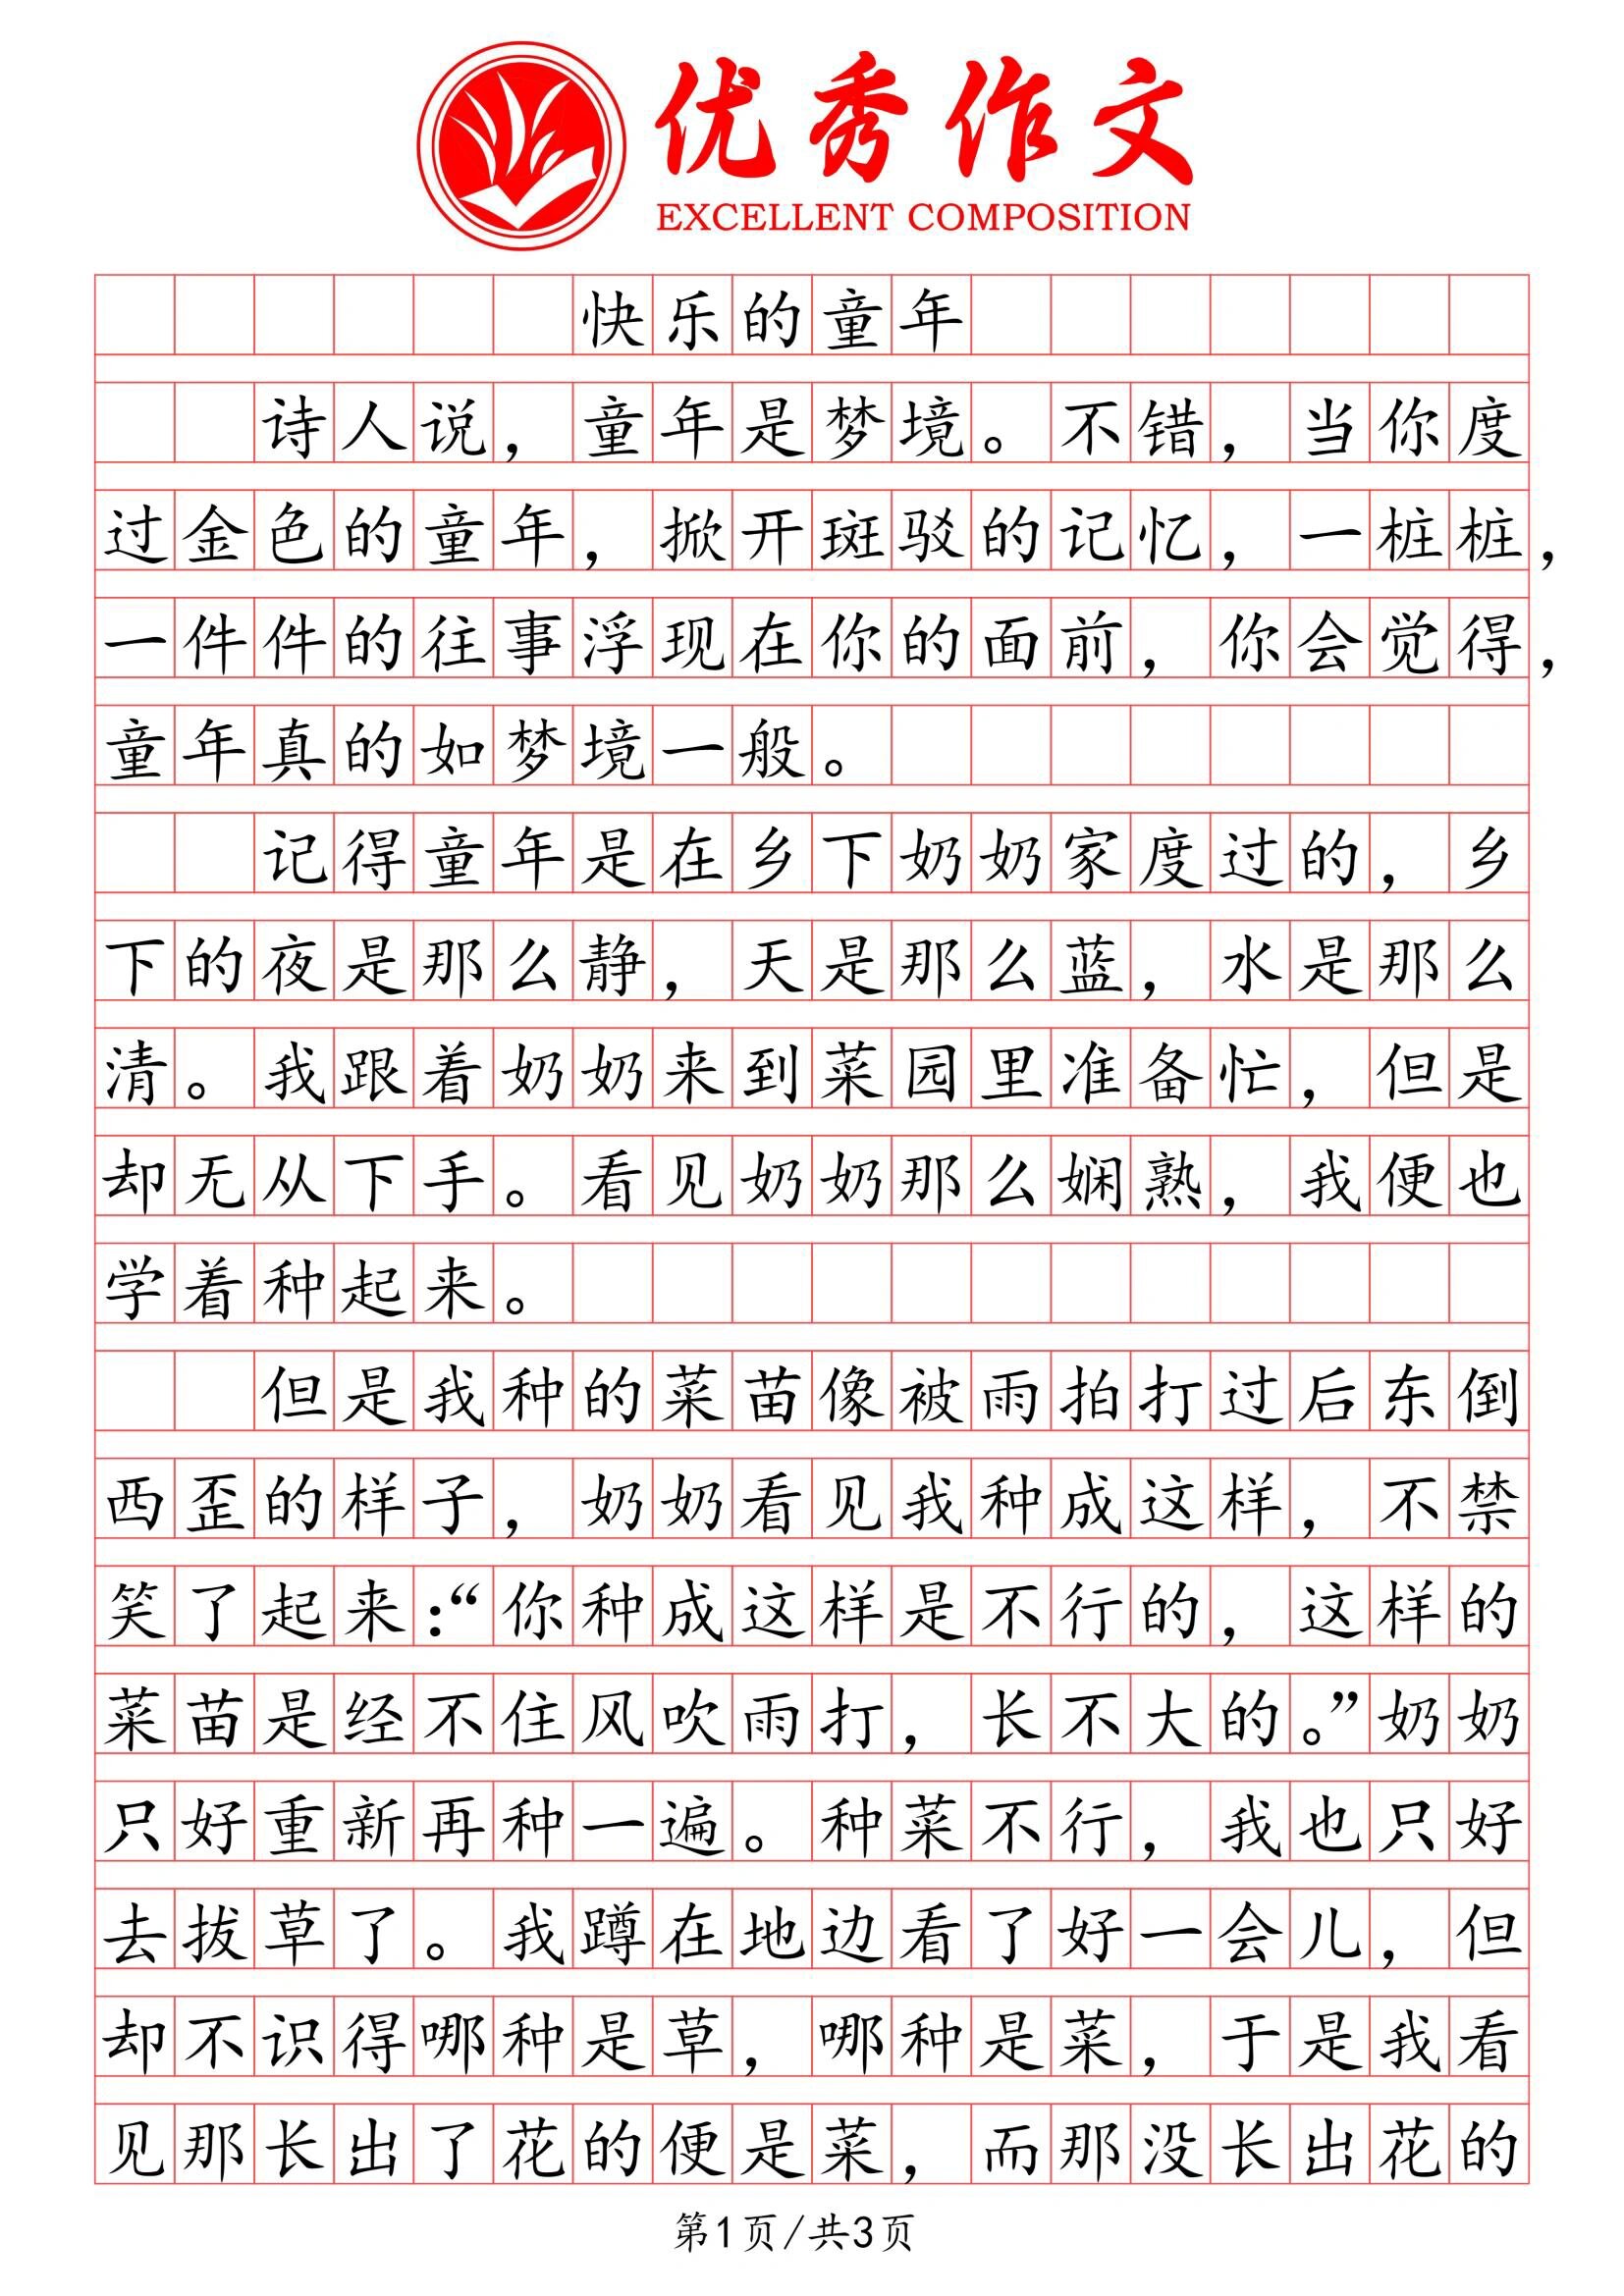 优秀作文
EXCELLENT COMPOSITION
快乐的童年
诗人说，童年是梦境。不错，当你度
过金色的童年，掀开斑驳的记忆，一桩桩，
一件件的往事浮现在你的面前，你会觉得，
童年真的如梦境一般。
记得童年是在乡下奶奶家度过的，乡
下的夜是那么静，天是那么蓝，水是那么
清。我跟着奶奶来到菜园里准备忙，但是
却无从下手。看见奶奶那么娴熟，我便也
学着种起来。
但是我种的菜苗像被雨拍打过后东倒
西歪的样子，奶奶看见我种成这样，不禁
笑了起来：“你种成这样是不行的，这样的
菜苗是经不住风吹雨打，长不大的。”奶奶
只好重新再种一遍。种菜不行，我也只好
去拔草了。我蹲在地边看了好一会儿，但
却不识得哪种是草，哪种是菜，于是我看
见那长出了花的便是菜，而那没长出花的
第1页/共3页